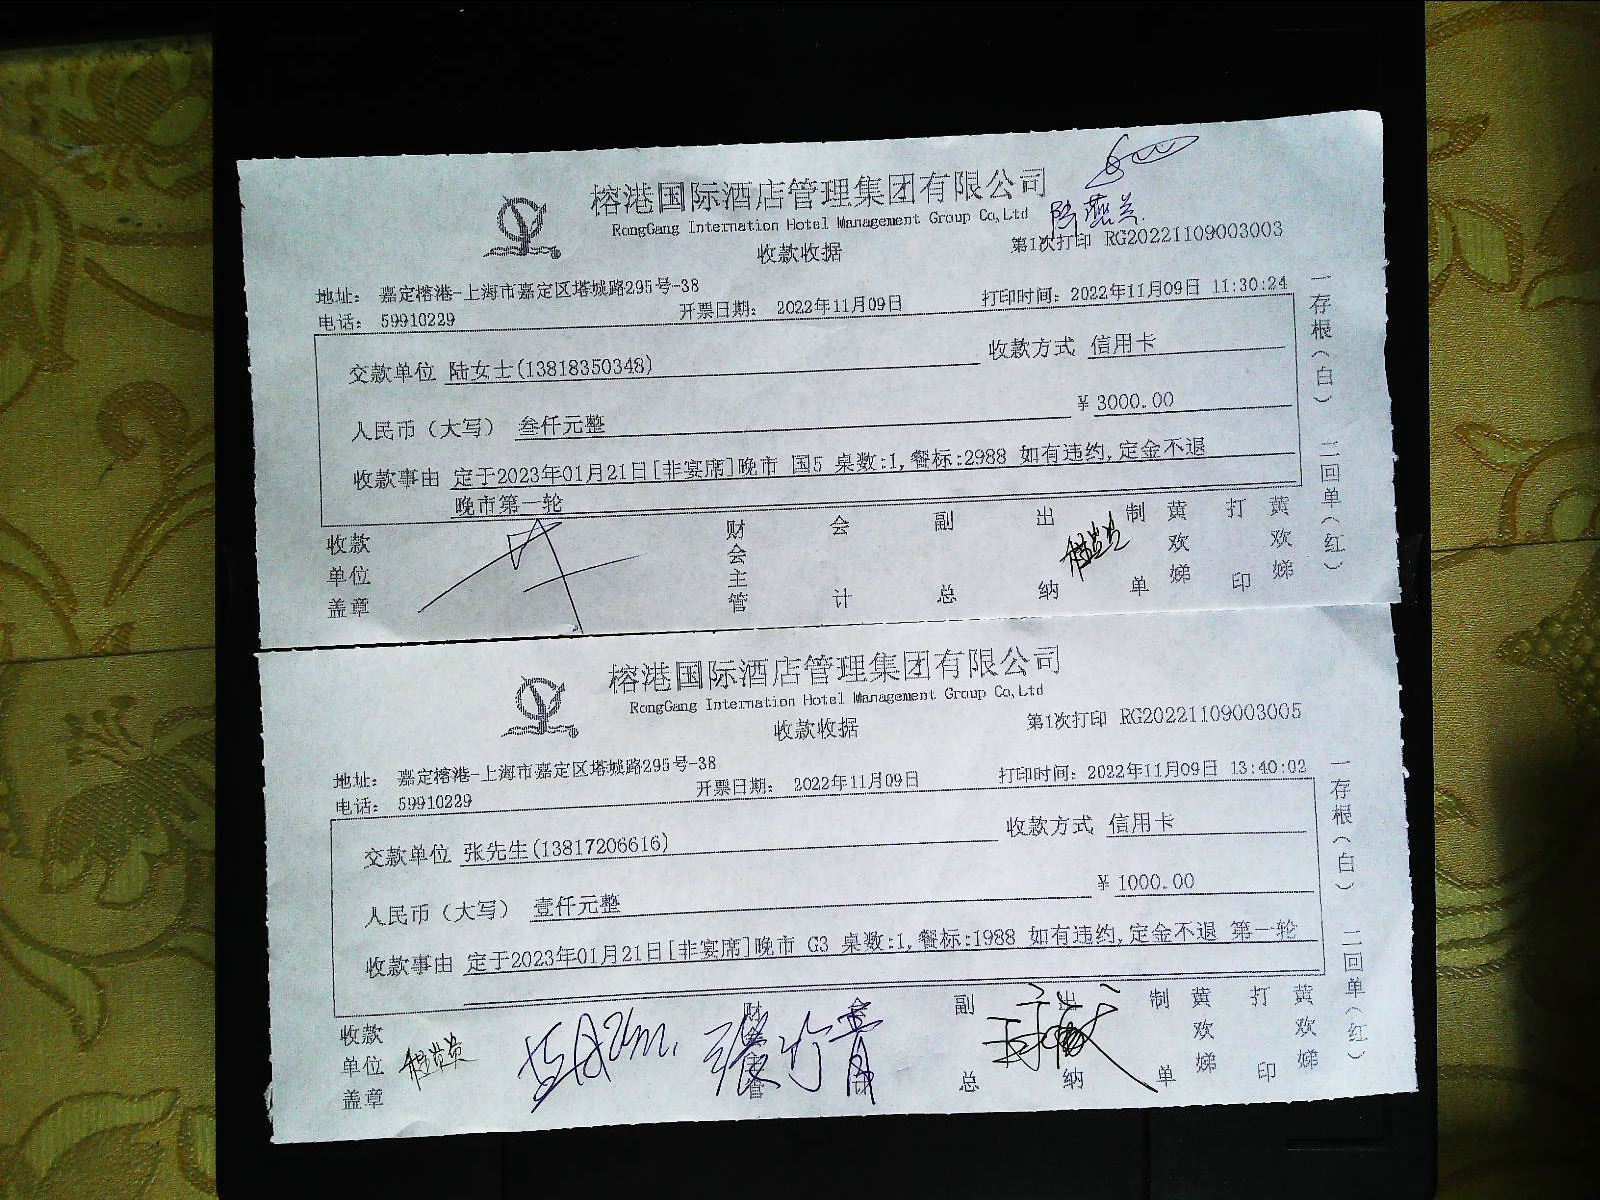 榕港国际酒店管理集团有限公司
RongGang Internation Hotel Management Group Co,Ltd
收款收据
第1次打印 RG20221109003003
地址： 嘉定榕港-上海市嘉定区塔城路295号-38
电话： 59910229
开票日期： 2022年11月09日
打印时间：2022年11月09日 11:30:24
交款单位 陆女士(13818350348)
收款方式 信用卡
人民币（大写） 叁仟元整
¥ 3000.00
收款事由 定于2023年01月21日[非宴席]晚市 国5 桌数:1,餐标:2988 如有违约,定金不退
晚市第一轮
收款单位盖章
财会主管
会计
副总
出纳
制单
黄欢娣
打印
黄欢娣
一存根（白） 二回单（红）
榕港国际酒店管理集团有限公司
RongGang Internation Hotel Management Group Co,Ltd
收款收据
第1次打印 RG20221109003005
地址： 嘉定榕港-上海市嘉定区塔城路295号-38
电话： 59910229
开票日期： 2022年11月09日
打印时间：2022年11月09日 13:40:02
交款单位 张先生(13817206616)
收款方式 信用卡
人民币（大写） 壹仟元整
¥ 1000.00
收款事由 定于2023年01月21日[非宴席]晚市 G3 桌数:1,餐标:1988 如有违约,定金不退 第一轮
收款单位盖章
财会主管
会计
副总
出纳
制单
黄欢娣
打印
黄欢娣
一存根（白） 二回单（红）